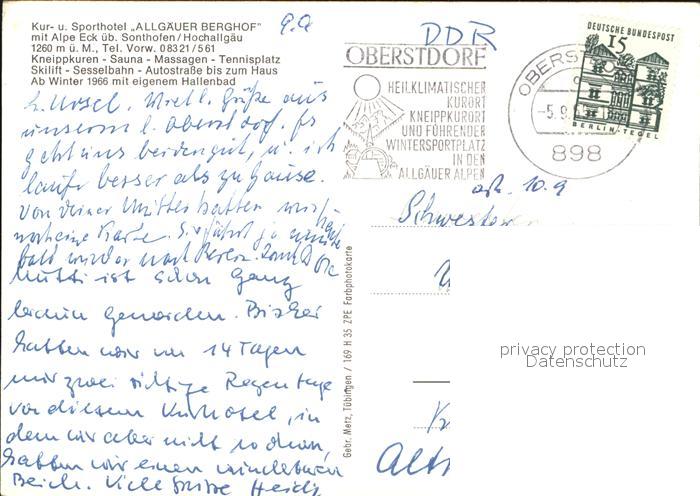 Kur- u. Sporthotel „ALLGÄUER BERGHOF"
mit Alpe Eck üb. Sonthofen/Hochallgäu
1260 m ü. M., Tel. Vorw. 08321/561
Kneippkuren - Sauna - Massagen - Tennisplatz
Skilift - Sesselbahn - Autostraße bis zum Haus
Ab Winter 1966 mit eigenem Hallenbad
9.9
L. Ursel. Viell. Grüße aus
unserm l. Oberstdorf. Es
geht uns beiden gut, u. ich
laufe besser als zu Hause.
Von deiner Mutter hatten wir
noch eine Karte. Sie fährt ja
bald wieder nach Berlin.
Mutti ist schon ganz
braun geworden. Bisher
hatten wir in 14 Tagen
nur zwei richtige Regentage
von diesem Kurhotel, in
dem wir aber nicht wohnen,
hatten wir einen wunderbaren
Blick. Viele Grüße Heidi
Gebr. Metz, Tübingen / 169 H 35 ZPE Farbphotokarte
DDR
OBERSTDORF
HEILKLIMATISCHER
KURORT
KNEIPPKURORT
UND FÜHRENDER
WINTERSPORTPLATZ
IN DEN
ALLGÄUER ALPEN
OBERST
-5.9.
898
DEUTSCHE BUNDESPOST
15
BERLIN-TEGEL
10.9
Schwester
Alt
privacy protection
Datenschutz